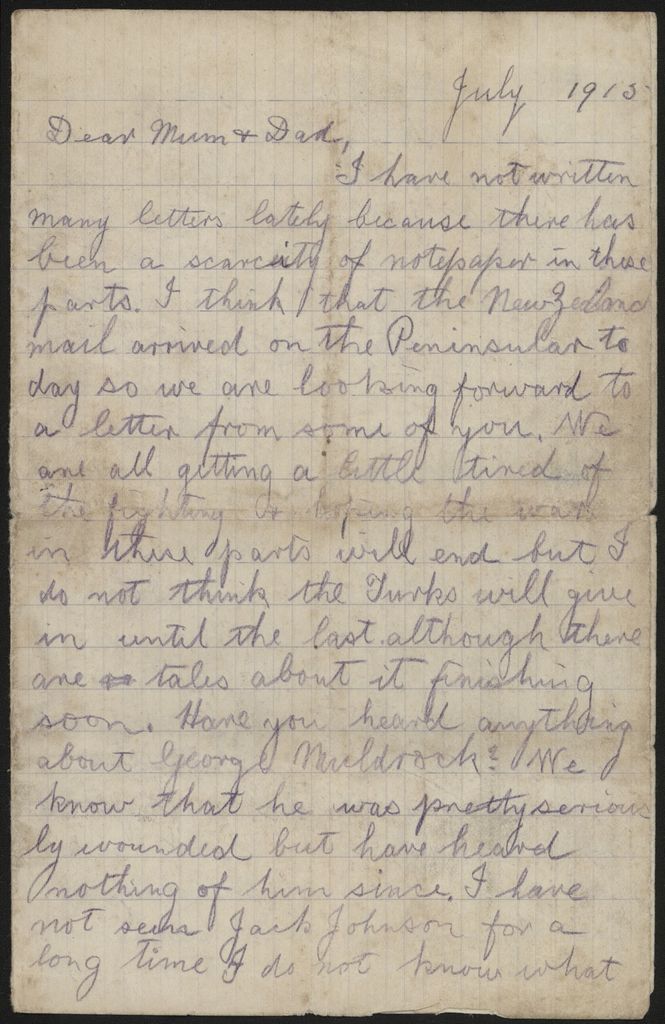 July 1915
Dear Mum & Dad,
I have not written
many letters lately because there has
been a scarcity of notepaper in these
parts. I think that the New Zealand
mail arrived on the Peninsular to
day so we are looking forward to
a letter from some of you. We
are all getting a little tired of
the fighting & hoping the war
in these parts will end but I
do not think the Turks will give
in until the last although there
are tales about it finishing
soon. Have you heard anything
about George Muldrock? We
know that he was pretty serious
ly wounded but have heard
nothing of him since. I have
not seen Jack Johnson for a
long time I do not know what